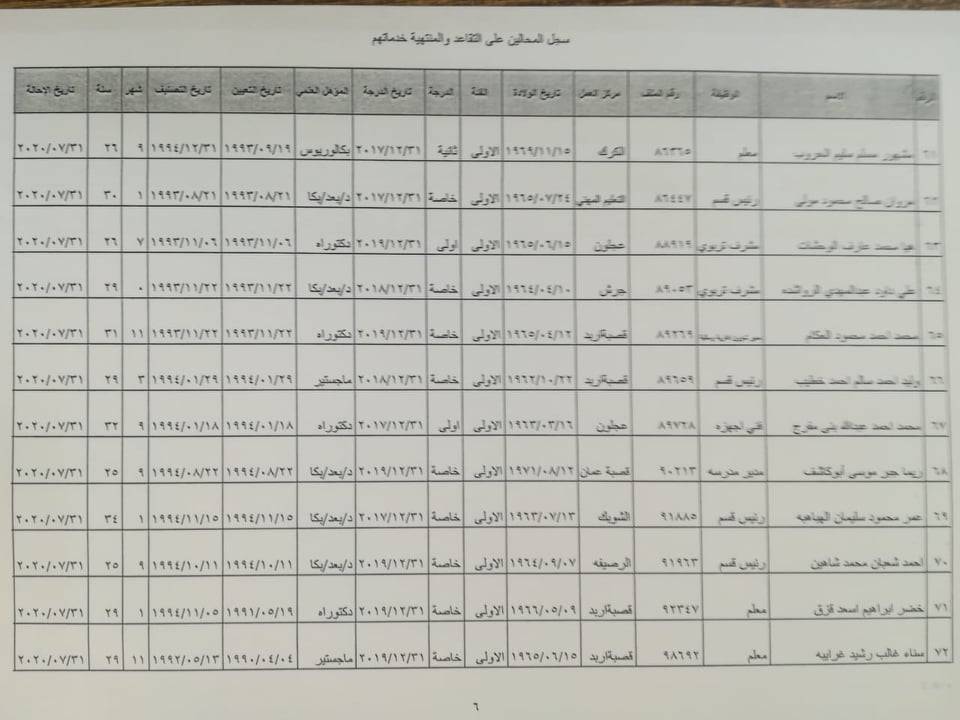 سجل المحالين على التقاعد والمنتهية خدماتهم
الرقم الاسم الوظيفة رقم الملف مركز العمل تاريخ الولادة الفئة الدرجة تاريخ الدرجة المؤهل العلمي تاريخ التعيين تاريخ التصنيف شهر سنة تاريخ الاحالة
٦١ مشهور مسلم سليم الحروب معلم ٨٦٣٦٥ الكرك ١٩٦٩/١١/١٥ الاولى ثانية ٢٠١٧/١٢/٣١ بكالوريوس ١٩٩٣/٠٩/١٩ ١٩٩٤/١٢/٣١ ٩ ٢٦ ٢٠٢٠/٠٧/٣١
٦٢ مروان صالح محمود مولى رئيس قسم ٨٦٤٤٧ التعليم المهني ١٩٦٥/٠٧/٢٤ الاولى خاصة ٢٠١٧/١٢/٣١ د/بعد/بكا ١٩٩٣/٠٨/٢١ ١٩٩٣/٠٨/٢١ ١ ٣٠ ٢٠٢٠/٠٧/٣١
٦٣ محمد عارف الوحشات مشرف تربوي ٨٨٩١٩ عجلون ١٩٦٥/٠٦/١٥ الاولى اولى ٢٠١٩/١٢/٣١ دكتوراه ١٩٩٣/١١/٠٦ ١٩٩٣/١١/٠٦ ٧ ٢٦ ٢٠٢٠/٠٧/٣١
٦٤ علي داود عبدالمهدي الرواشده مشرف تربوي ٨٩٠٥٣ جرش ١٩٦٤/٠٤/١٠ الاولى خاصة ٢٠١٨/١٢/٣١ د/بعد/بكا ١٩٩٣/١١/٢٢ ١٩٩٣/١١/٢٢ ٠ ٢٩ ٢٠٢٠/٠٧/٣١
٦٥ محمد احمد محمود العكام ٨٩٢٦٩ قصبةاربد ١٩٦٥/٠٤/١٢ الاولى خاصة ٢٠١٩/١٢/٣١ دكتوراه ١٩٩٣/١١/٢٢ ١٩٩٣/١١/٢٢ ١١ ٣١ ٢٠٢٠/٠٧/٣١
٦٦ وليد احمد سالم احمد خطيب رئيس قسم ٨٩٦٥٩ قصبةاربد ١٩٦٢/١٠/٢٢ الاولى خاصة ٢٠١٨/١٢/٣١ ماجستير ١٩٩٤/٠١/٢٩ ١٩٩٤/٠١/٢٩ ٣ ٢٩ ٢٠٢٠/٠٧/٣١
٦٧ محمد احمد عبدالله بني مفرج فني اجهزه ٨٩٧٢٨ عجلون ١٩٦٣/٠٣/١٦ الاولى اولى ٢٠١٧/١٢/٣١ دكتوراه ١٩٩٤/٠١/١٨ ١٩٩٤/٠١/١٨ ٩ ٣٢ ٢٠٢٠/٠٧/٣١
٦٨ ريما جبر موسى أبوكاشف مدير مدرسه ٩٠٢١٣ قصبة عمان ١٩٧١/٠٨/١٢ الاولى خاصة ٢٠١٩/١٢/٣١ د/بعد/بكا ١٩٩٤/٠٨/٢٢ ١٩٩٤/٠٨/٢٢ ٩ ٢٥ ٢٠٢٠/٠٧/٣١
٦٩ عمر محمود سليمان الهباهبه رئيس قسم ٩١٨٨٥ الشوبك ١٩٦٣/٠٧/١٣ الاولى خاصة ٢٠١٧/١٢/٣١ د/بعد/بكا ١٩٩٤/١١/١٥ ١٩٩٤/١١/١٥ ١ ٣٤ ٢٠٢٠/٠٧/٣١
٧٠ احمد شعبان محمد شاهين رئيس قسم ٩١٩٦٣ الرصيفه ١٩٦٤/٠٩/٠٧ الاولى خاصة ٢٠١٩/١٢/٣١ د/بعد/بكا ١٩٩٤/١٠/١١ ١٩٩٤/١٠/١١ ٩ ٢٥ ٢٠٢٠/٠٧/٣١
٧١ خضر ابراهيم اسعد قازق معلم ٩٢٣٤٧ قصبةاربد ١٩٦٦/٠٥/٠٩ الاولى خاصة ٢٠١٩/١٢/٣١ دكتوراه ١٩٩١/٠٥/١٩ ١٩٩٤/١١/٠٥ ١ ٢٩ ٢٠٢٠/٠٧/٣١
٧٢ سناء غالب رشيد غرايبه معلم ٩٨٦٩٢ قصبةاربد ١٩٦٥/٠٦/١٥ الاولى خاصة ٢٠١٩/١٢/٣١ ماجستير ١٩٩٠/٠٤/٠٤ ١٩٩٢/٠٥/١٣ ١١ ٢٩ ٢٠٢٠/٠٧/٣١
٦